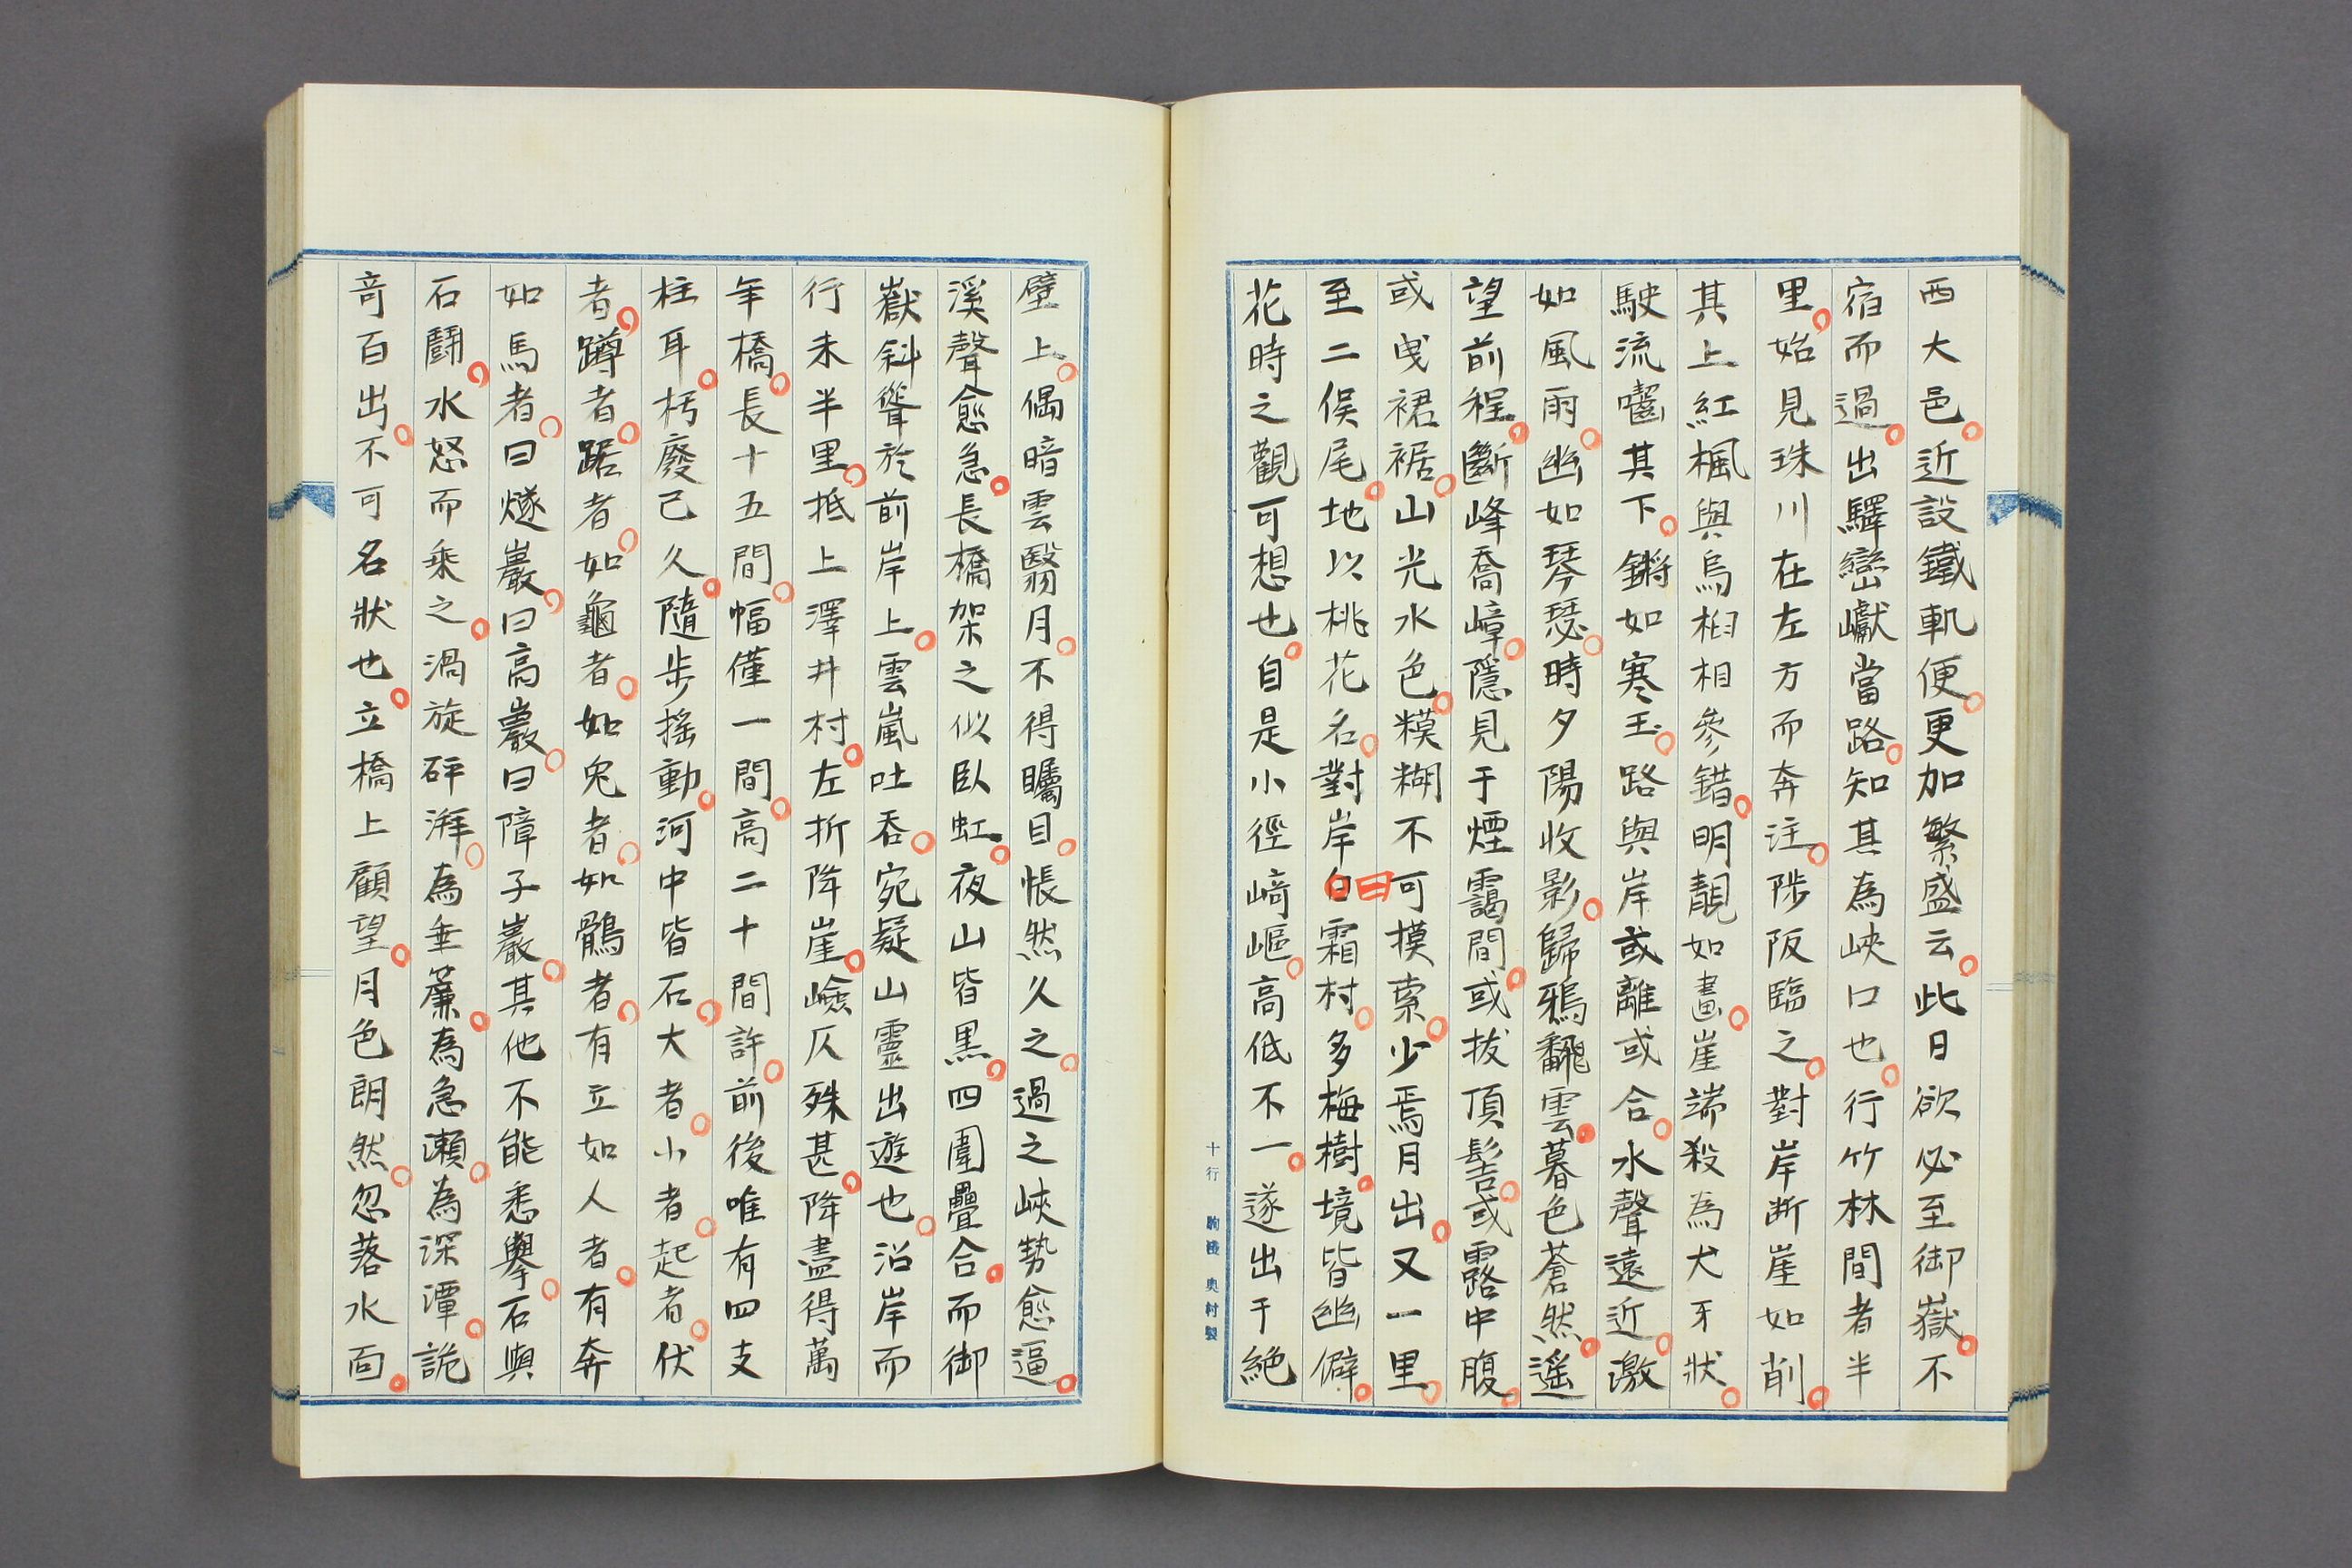 西大邑。近設鐵軌便。更加繁盛云。此日欲必至御嶽。不
宿而過。出驛巒巘當路。知其為峽口也。行竹林間者半
里。始見珠川在左方而奔注。陟阪臨之。對岸断崖如削。
其上紅楓與烏桕相參錯。明靚如畫。崖端殺為犬牙狀。
駛流囓其下。鏘如寒玉。路與岸或離或合。水聲遠近。激
如風雨。幽如琴瑟。時夕陽收影。歸鴉翻雲。暮色蒼然。遥
望前程。斷峰喬嶂。隱見于煙靄間。或拔頂髻。或露中腹。
或曵裙裾。山光水色。糢糊不可摸索。少焉月出。又一里。
至二俣尾。地以桃花名。對岸曰白霜村。多梅樹。境皆幽僻。
花時之觀可想也。自是小徑崎嶇。高低不一。遂出于絶
十行 駒込 奥村製
壁上。偶暗雲翳月。不得矚目。悵然久之。過之峽勢愈逼。
溪聲愈急。長橋架之似臥虹。夜山皆黒。四圍疊合。而御
嶽斜聳於前岸上。雲嵐吐吞。宛疑山靈出遊也。沿岸而
行未半里。抵上澤井村。左折降崖。嶮仄殊甚。降盡得萬
年橋。長十五間。幅僅一間。高二十間許。前後唯有四支
柱耳。朽廢已久。隨步搖動。河中皆石。大者。小者。起者。伏
者。蹲者。踞者。如龜者。如兔者。如鶻者。有立如人者。有奔
如馬者。曰燧巖。曰高巖。曰障子巖。其他不能悉擧。石與
石鬪。水怒而乘之。渦旋砰湃。為垂簾。為急瀬。為深潭。詭
奇百出。不可名狀也。立橋上顧望。月色朗然。忽落水面。